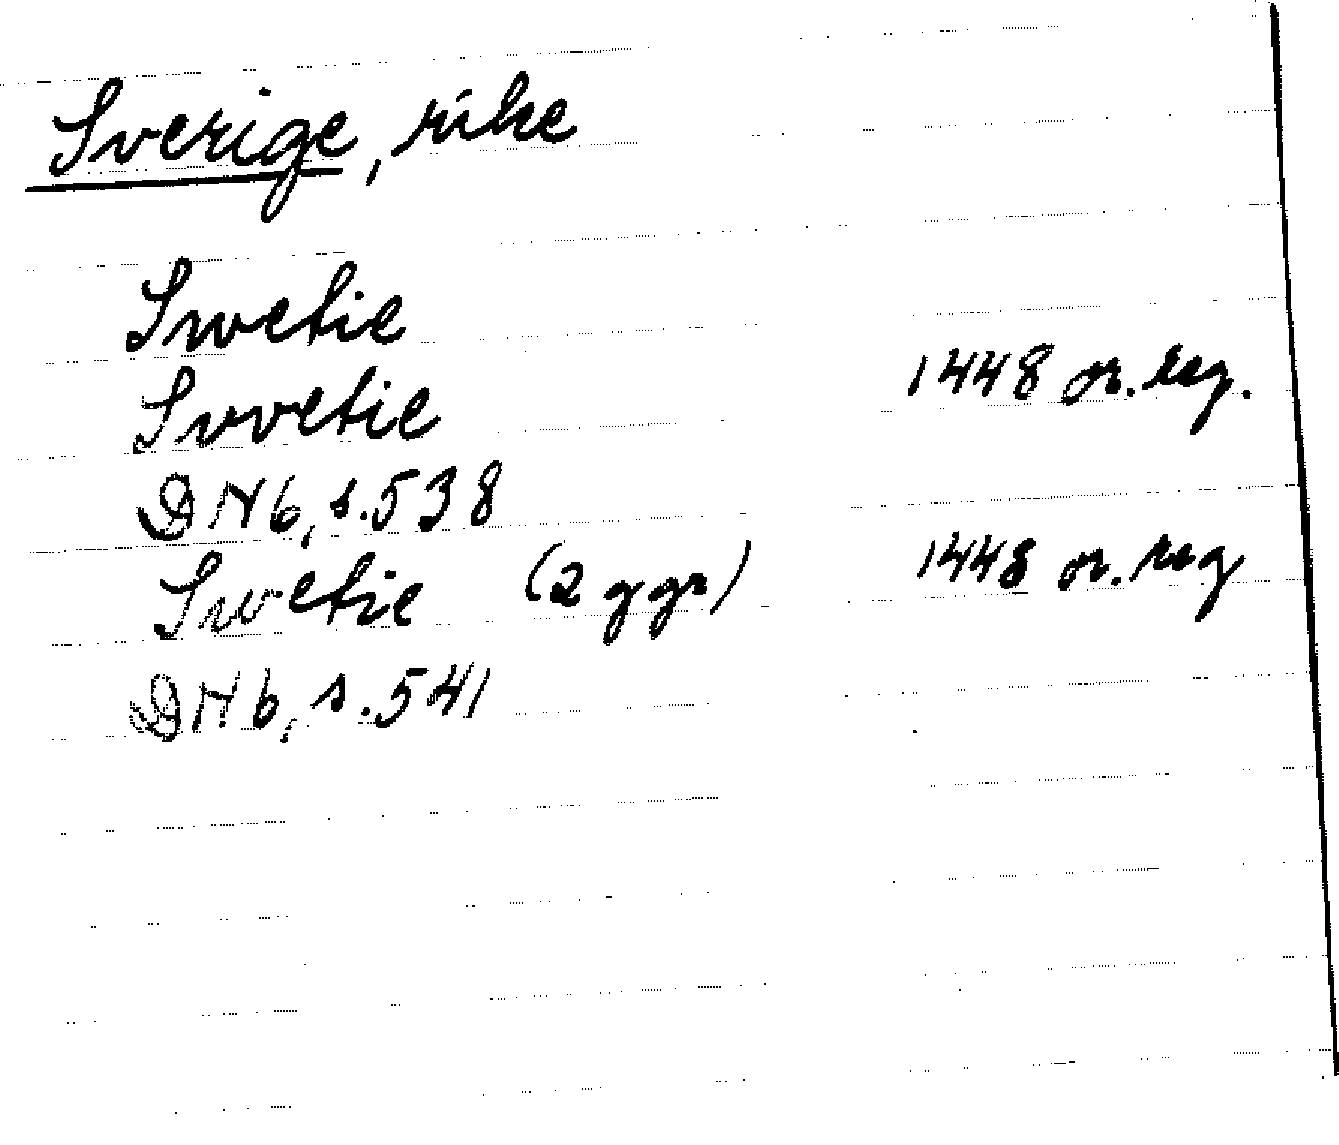 Sverige, rike
Swetie
Svvetie 1448 or. reg.
DN 6, s. 538
Swetie (2 ggr) 1448 or. reg
DN 6, s. 541